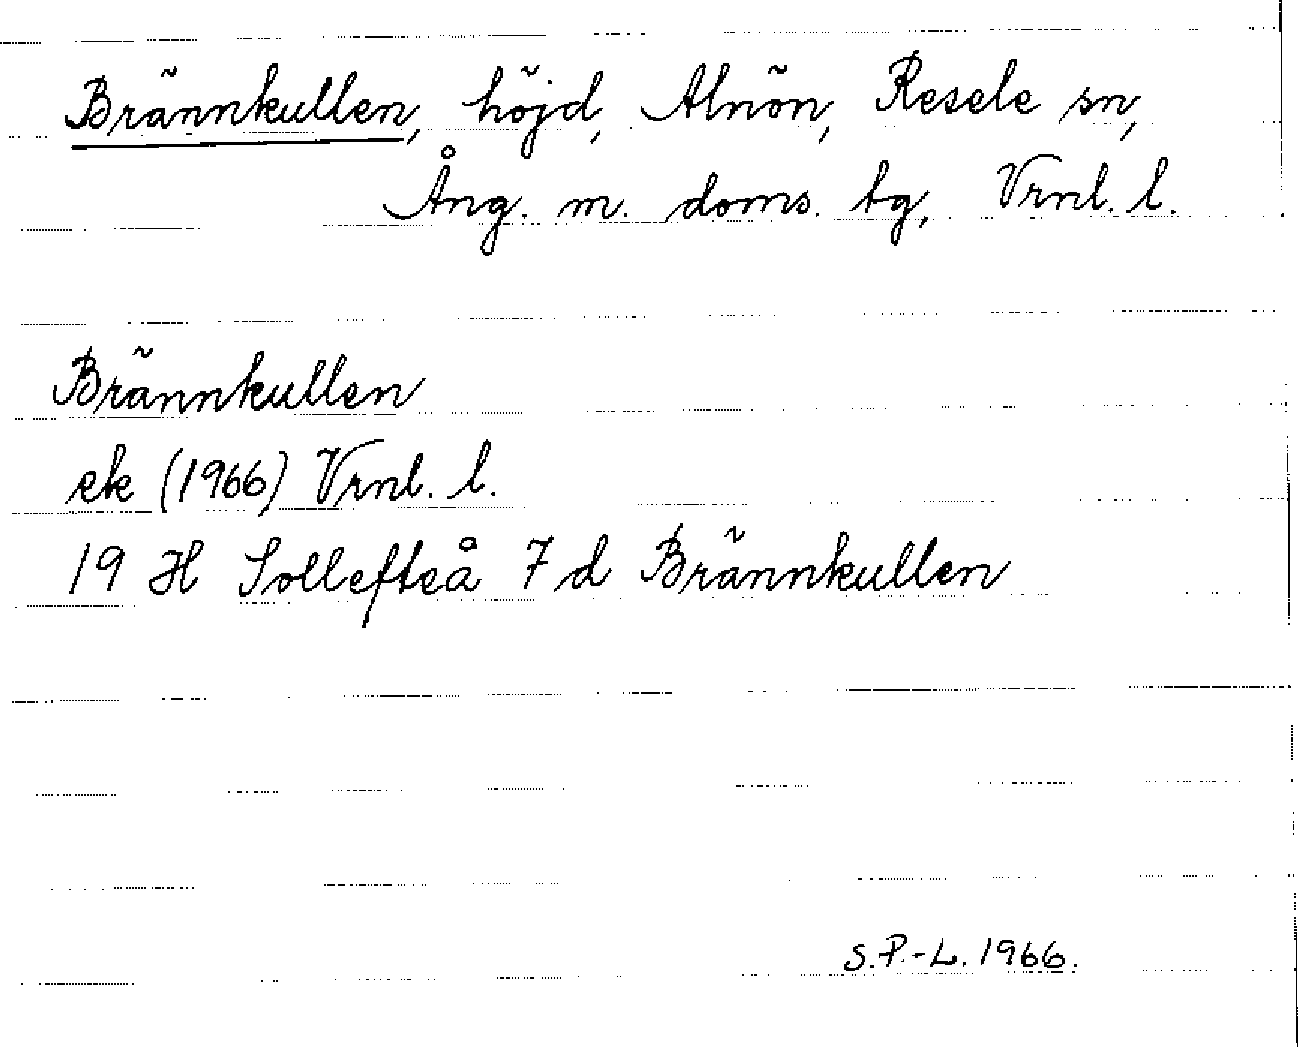 Brännkullen, höjd, Alnön, Resele sn,
Ång. m. doms. tg, Vrnl. l.
Brännkullen
ek (1966) Vrnl. l.
19 H Sollefteå 7 d Brännkullen
S.P.-L. 1966.